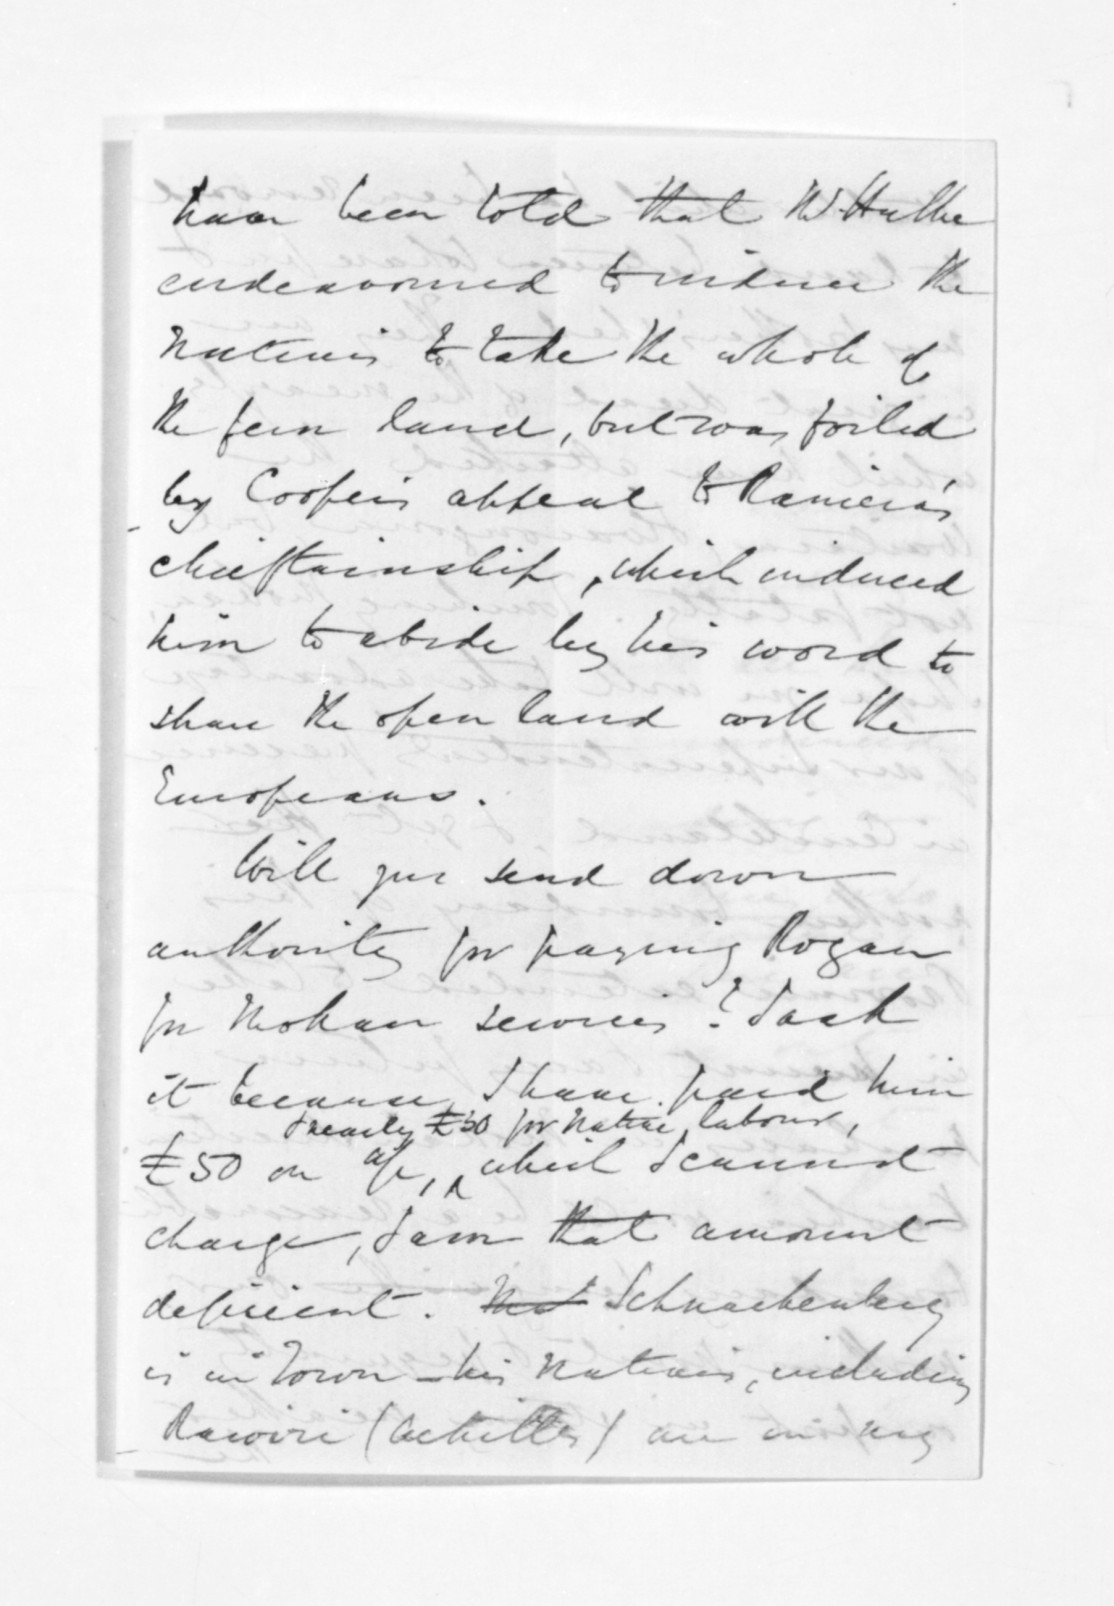 have been told that Mr Hulke
endeavoured to induce the
Natives to take the whole of
the fern land, but was foiled
by Cooper's appeal to Raniera's
chieftainship, which induced
him to abide by his word to
share the open land with the
Europeans.
Will you send down
authority for paying Rogan
for Mokau services? I ask
it because, I have paid him
& nearly £50 for native labour,
£50 on a/c, which I cannot
charge, I am that amount
deficient. Schnackenberg
is in Town – his Natives, including
Rawiri (Achilles) are in my